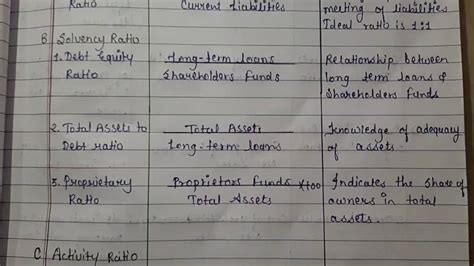 Ratio Current Liabilities meeting of liabilities
Ideal ratio is 1:1
B. Solvency Ratio
1. Debt Equity Long-term loans Relationship between
Ratio Shareholders funds long term loans &
Shareholders funds
2. Total Assets to Total Assets Knowledge of adequacy
Debt ratio Long-term loans of assets.
3. Proprietary Proprietors Funds x100 Indicates the share of
Ratio Total Assets owners in total
assets.
C. Activity Ratio